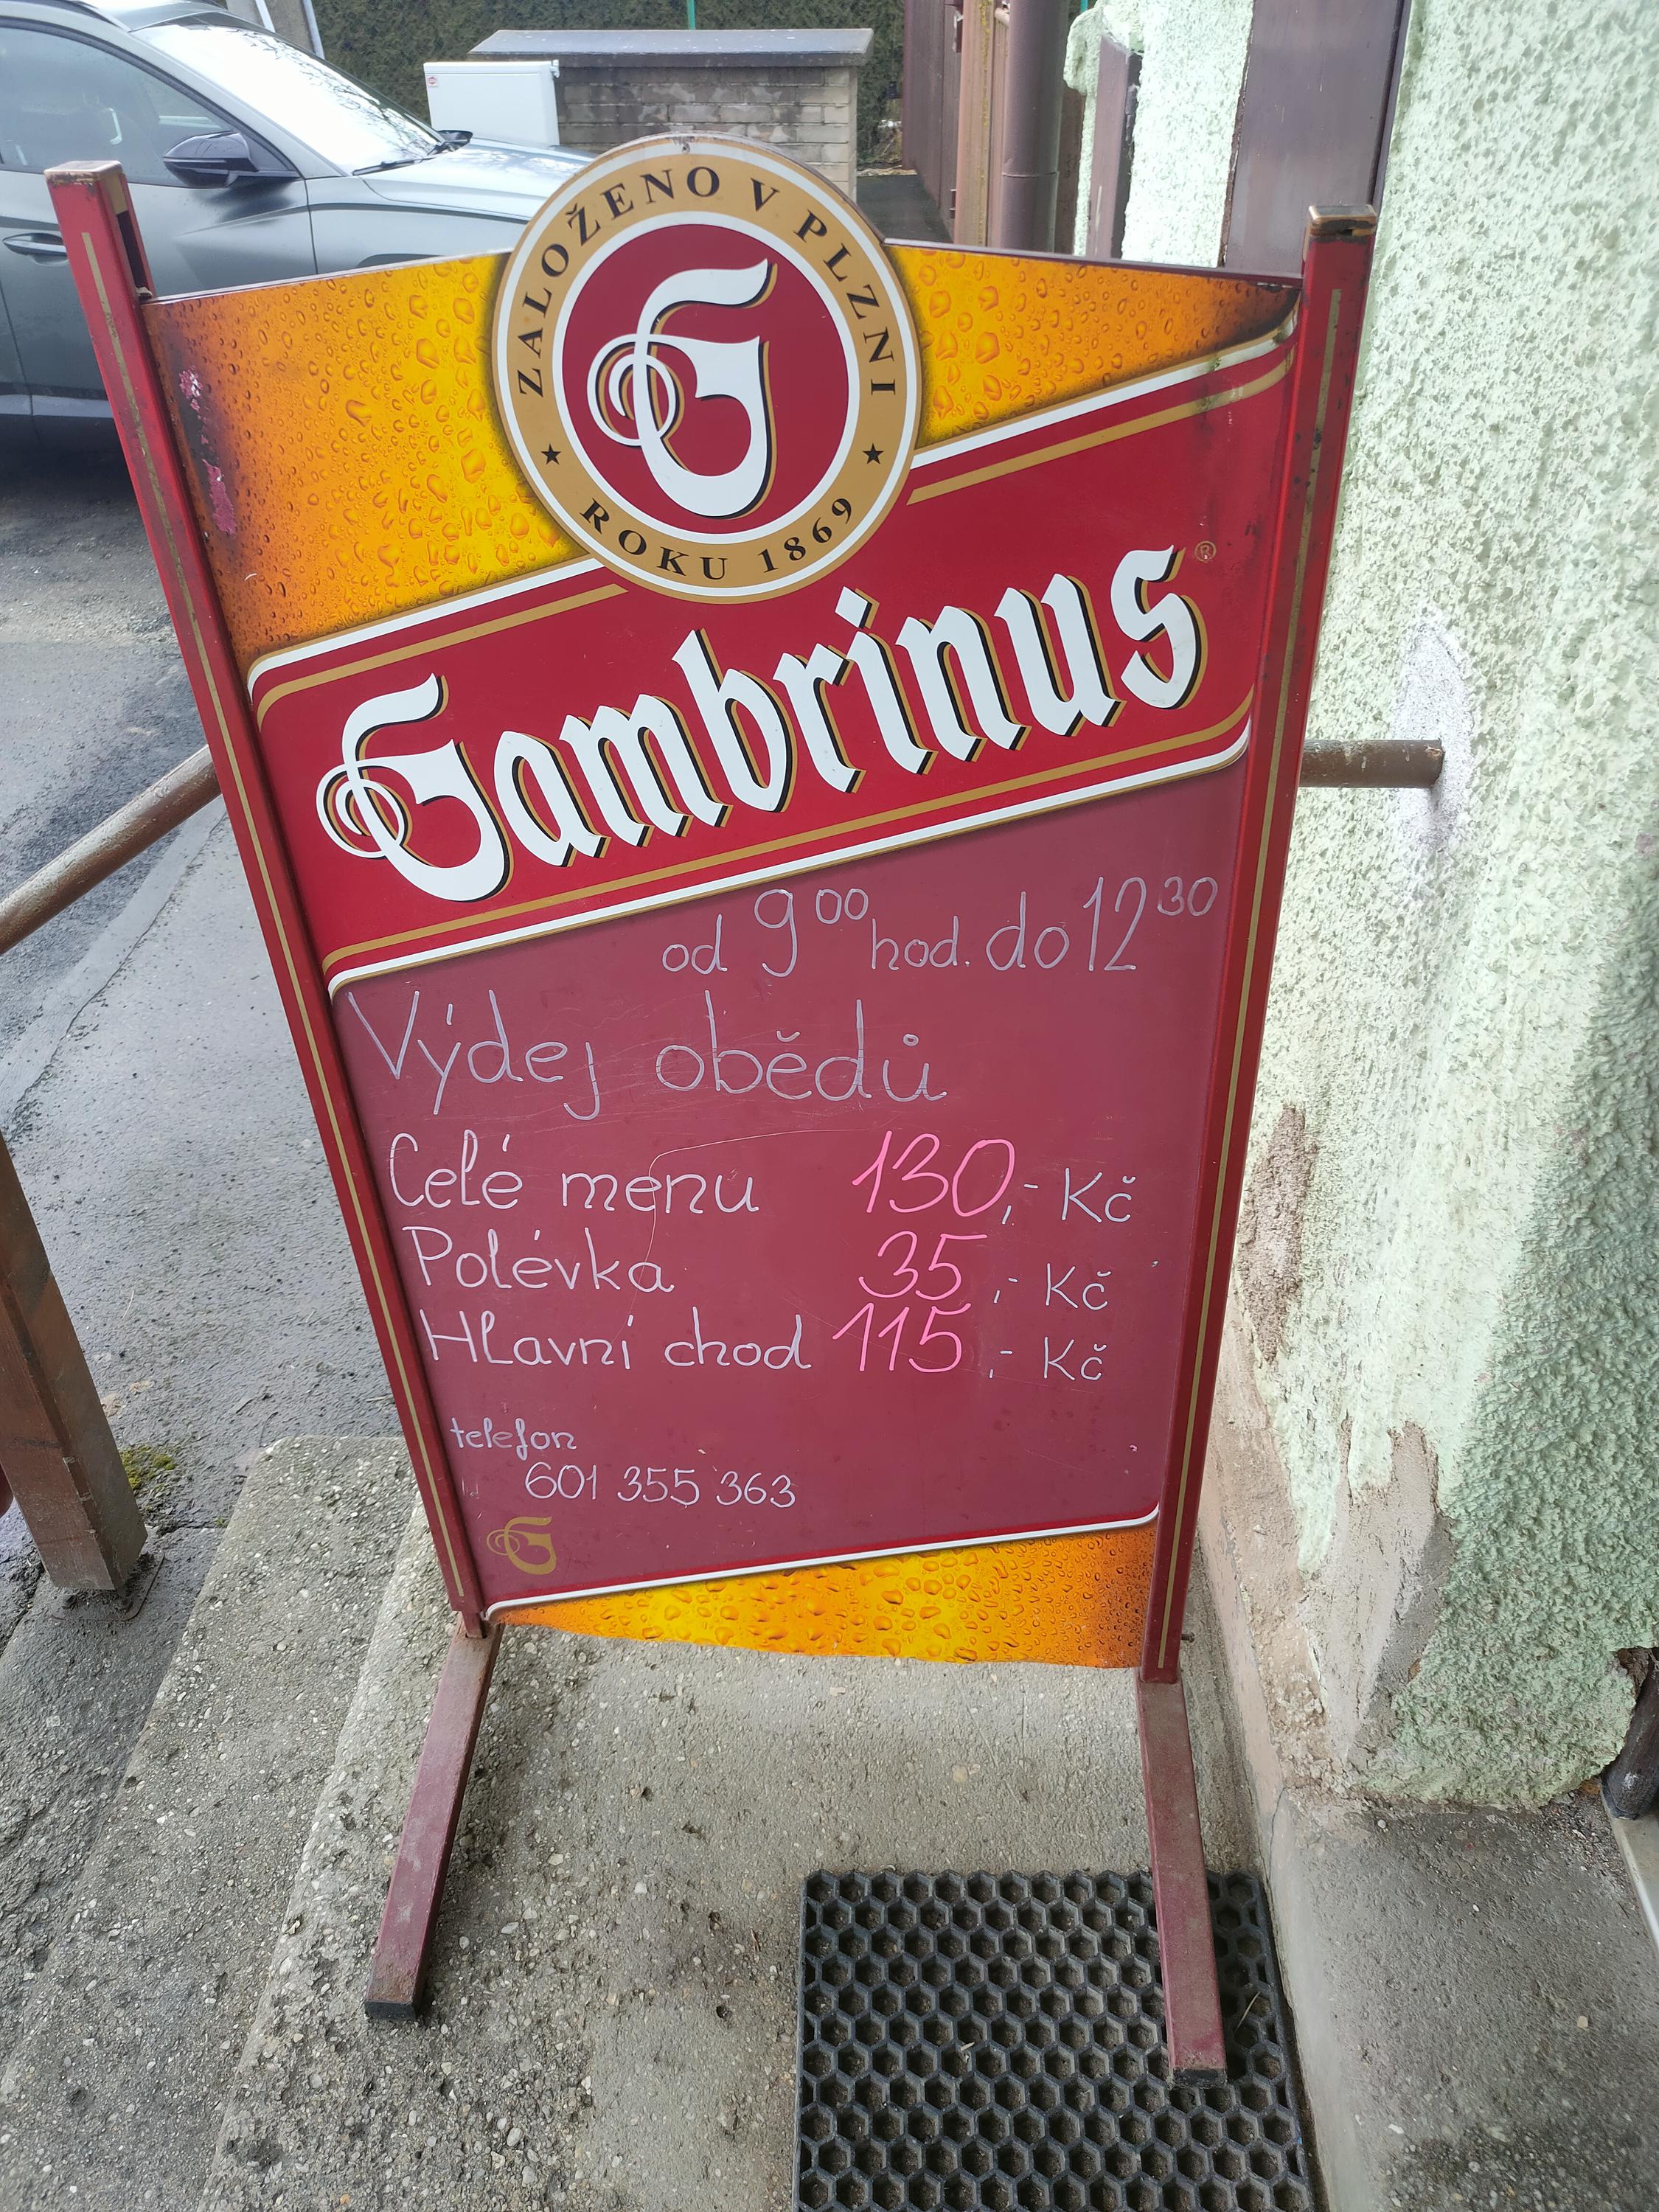 ZALOŽENO V PLZNI
ROKU 1869
G
Gambrinus ®
od 9⁰⁰ hod. do 12³⁰
Výdej obědů
Celé menu 130,- Kč
Polévka 35,- Kč
Hlavní chod 115,- Kč
telefon
601 355 363
G